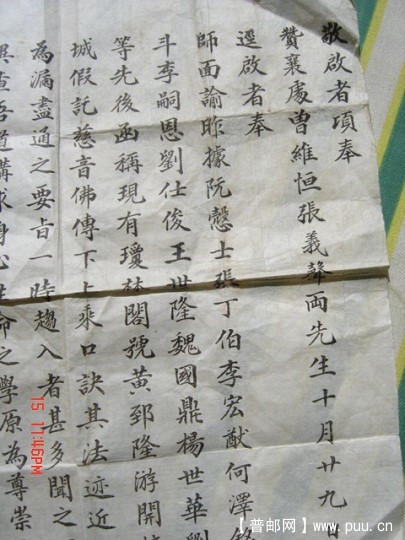 敬啟者項奉
贊襄處曾維恒張義聲兩先生十月廿九日
逕啟者奉
師面諭昨據阮慤士張丁伯李宏猷何澤
斗李嗣恩劉仕俊王世隆魏國鼎楊世華劉
等先後函稱現有瓊林閣號黃郅隆游開
城假託慈音佛傳下上乘口訣其法迹近
為漏盡通之要旨一時趨入者甚多聞之
吾道講求身心性命之學原為尊崇
15 11:46PM
【普邮网】www.puu.cn